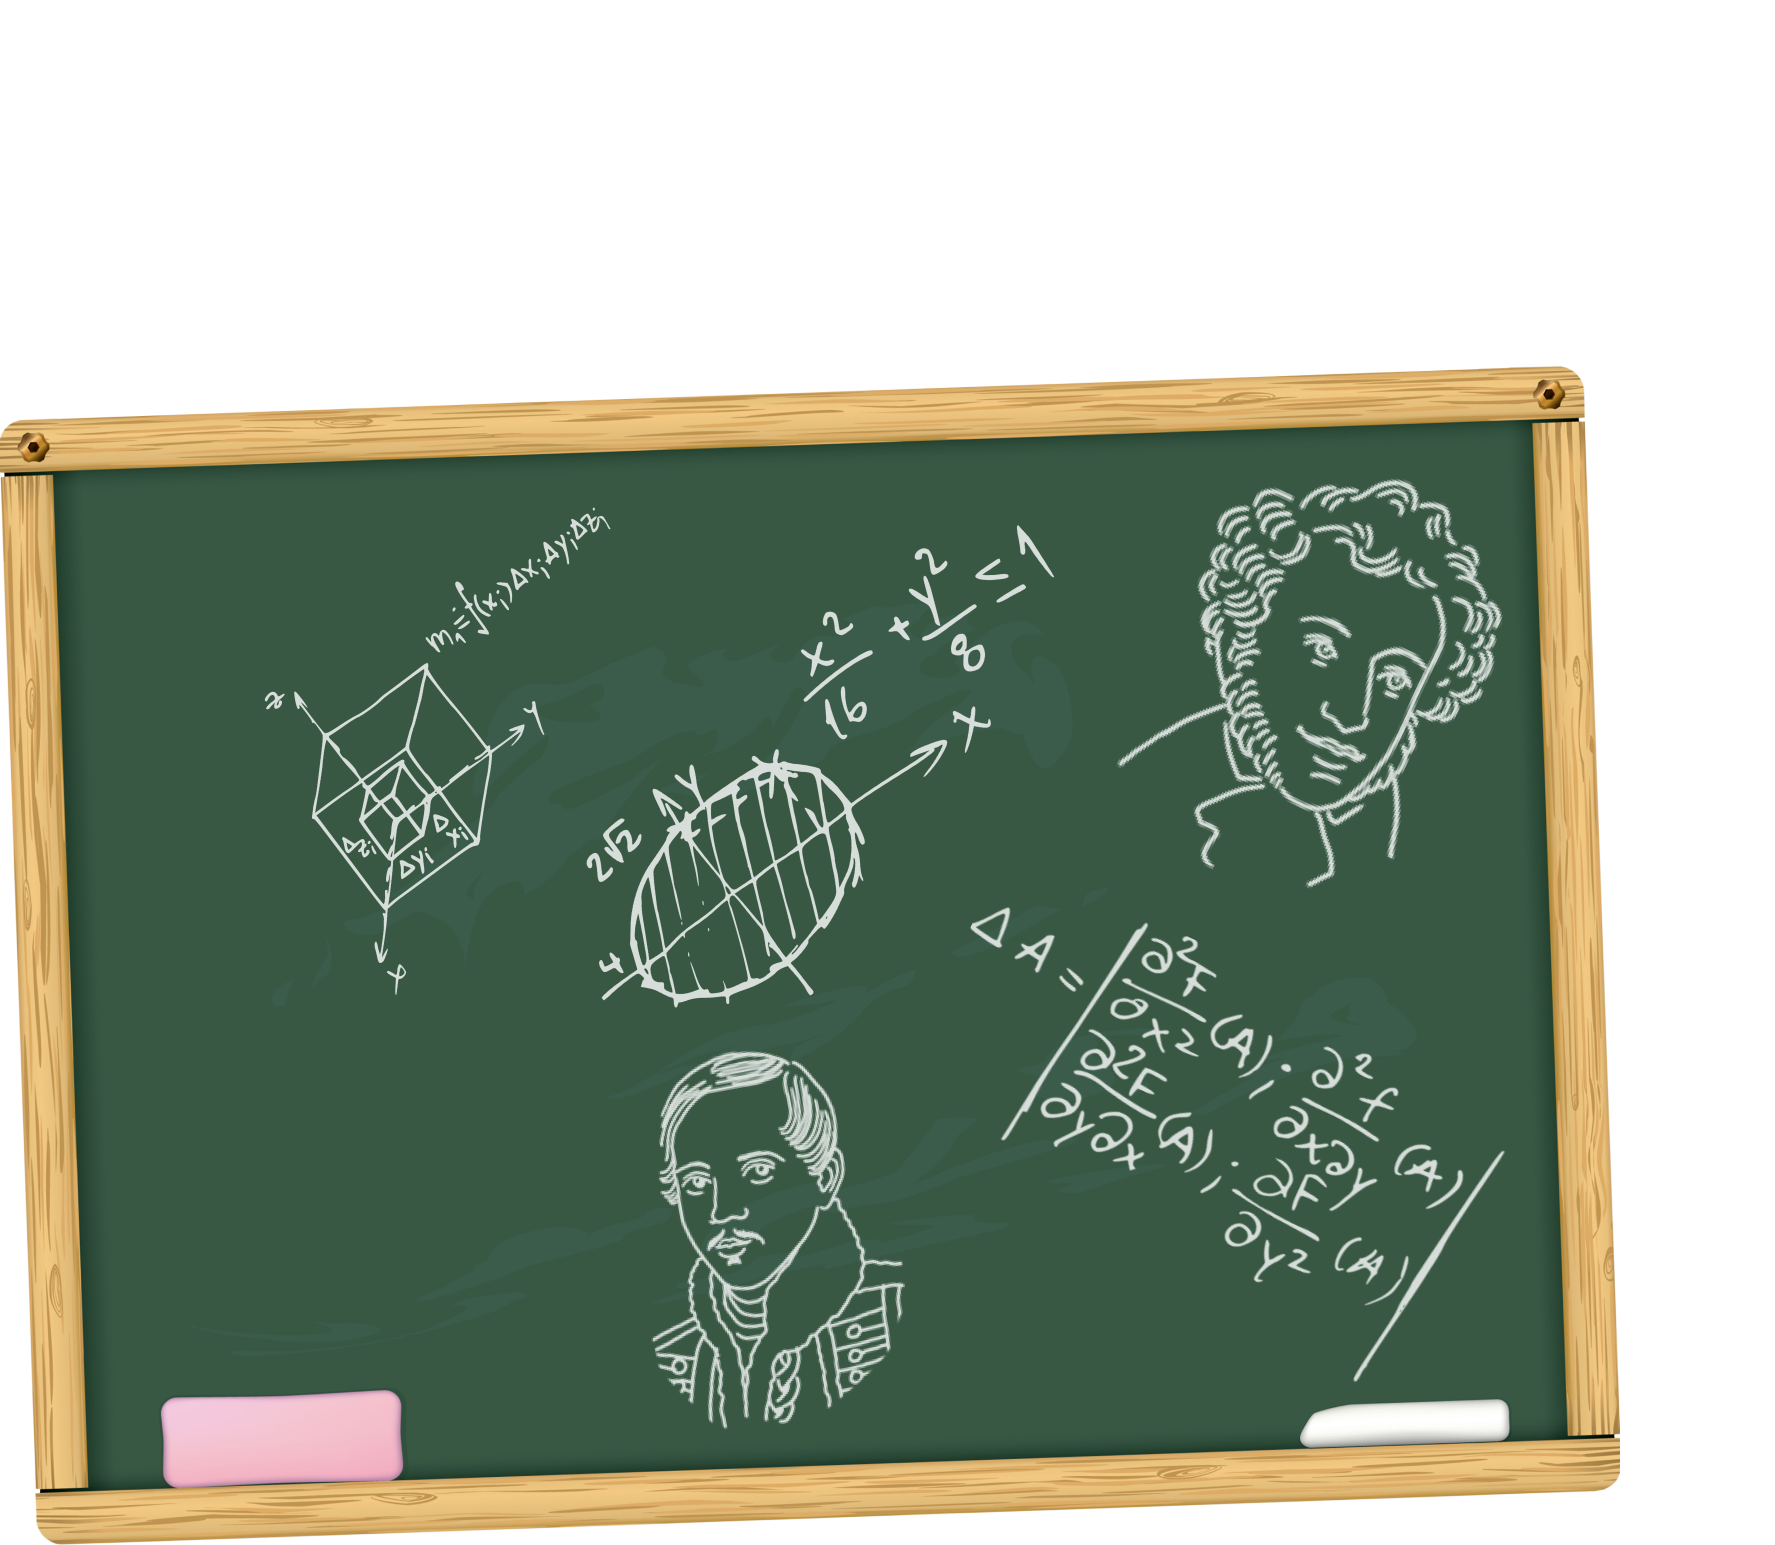 m₁=∫(xᵢ)Δxᵢ Δyᵢ Δzᵢ
z
Y
Δzᵢ
Δyᵢ
Δxᵢ
x² / 16 + y² / 8 ≤ 1
X
Y
2√2
4
ΔA = | ∂²F/∂x² (A); ∂²f/∂x∂y (A)
∂2F/∂y∂x (A); ∂F/∂y2 (A) |